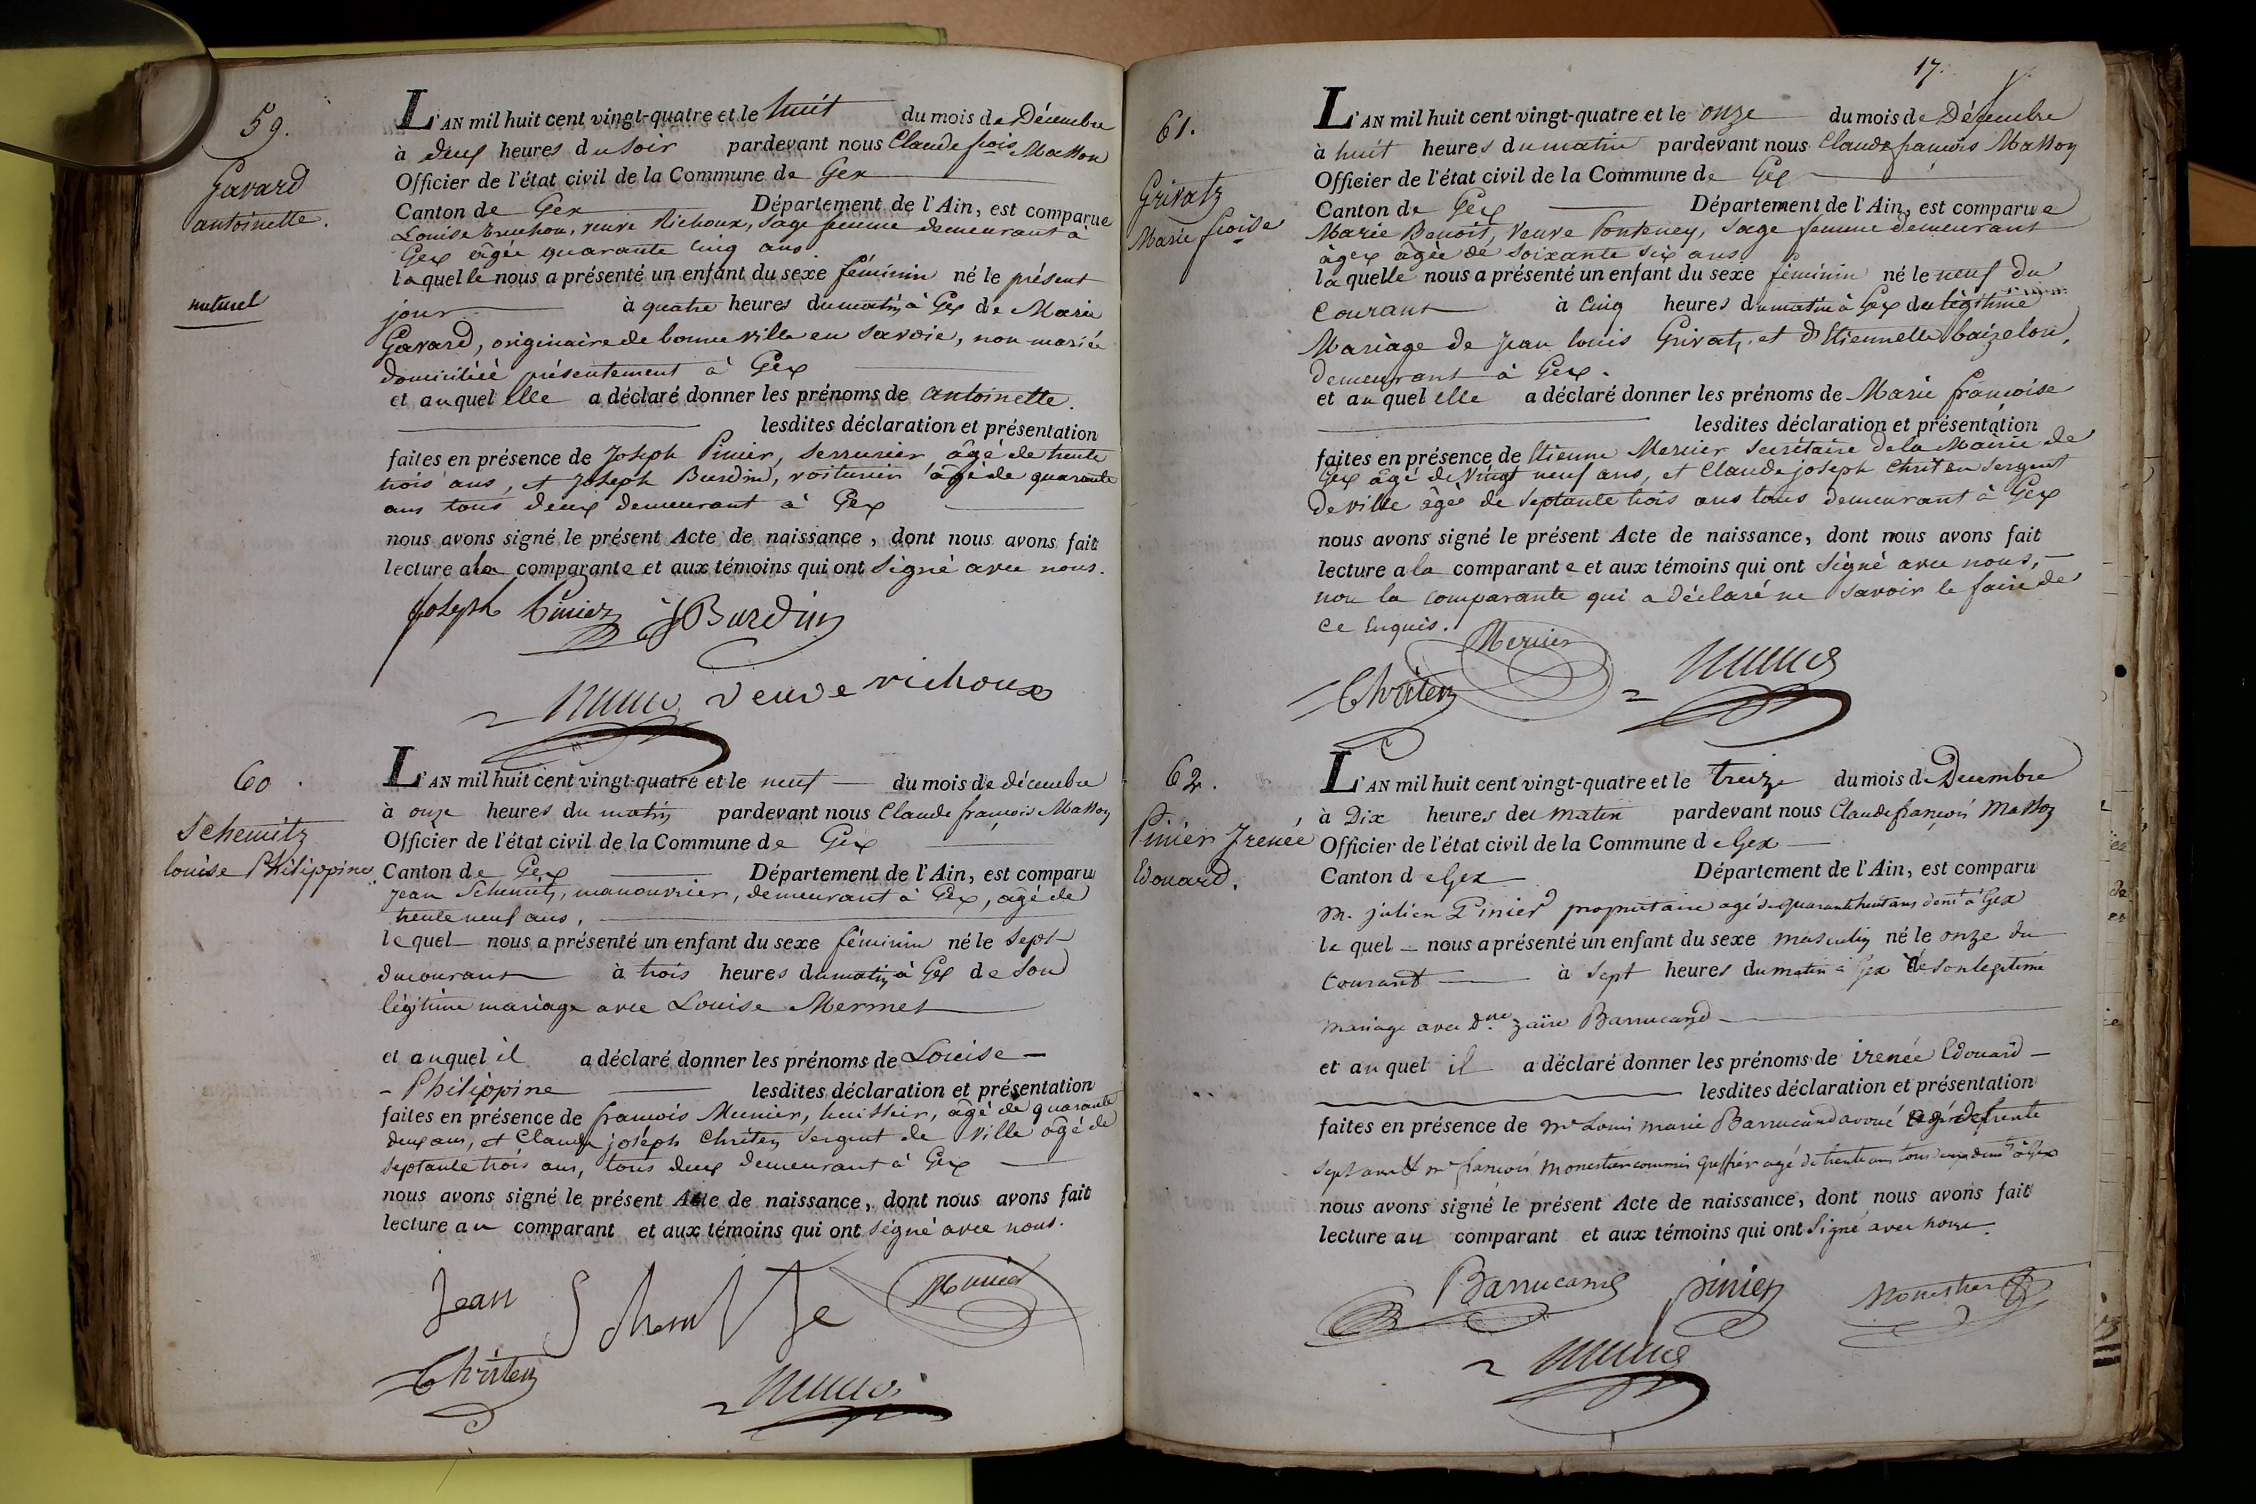 59.
Gavard
antoinette.
naturel
L'AN mil huit cent vingt-quatre et le huit du mois de Décembre
à deux heures du soir pardevant nous Claude fçois Masson
Officier de l'état civil de la Commune de Gex
Canton de Gex Département de l'Ain, est comparue
Louise veuve Richoux, sage femme demeurant à
Gex âgée quarante cinq ans.
laquelle nous a présenté un enfant du sexe féminin né le présent
jour à quatre heures du matin à Gex de Marie
Gavard, originaire de bonneville en Savoie, non mariée
domiciliée présentement à Gex
et auquel elle a déclaré donner les prénoms de antoinette.
lesdites déclaration et présentation
faites en présence de Joseph Pinier, serrurier âgé de trente
trois ans, et Joseph Burdin, voiturier âgé de quarante
ans tous deux demeurant à Gex
nous avons signé le présent Acte de naissance, dont nous avons fait
lecture a la comparante et aux témoins qui ont signé avec nous.
Joseph Pinier JBurdin
veuve richoux
60.
Schemitz
louise Philippine.
L'AN mil huit cent vingt-quatre et le neuf du mois de décembre
à onze heures du matin pardevant nous Claude françois Masson
Officier de l'état civil de la Commune de Gex
Canton de Gex Département de l'Ain, est comparu
Jean Schemitz, manouvrier, demeurant à Gex, âgé de
trente neuf ans.
lequel nous a présenté un enfant du sexe féminin né le sept
du courant à trois heures du matin à Gex de son
légitime mariage avec Louise Mermet
et auquel il a déclaré donner les prénoms de Louise
- Philippine lesdites déclaration et présentation
faites en présence de françois Meunier, huissier, âgé de quarante
deux ans, et Claude joseph Chrêten sergent de Ville âgé de
septante trois ans, tous deux demeurant à Gex
nous avons signé le présent Acte de naissance, dont nous avons fait
lecture au comparant et aux témoins qui ont signé avec nous.
Jean
Chrêten
17.
61.
Grivatz
Marie fçoise
L'AN mil huit cent vingt-quatre et le onze du mois de Décembre
à huit heures du matin pardevant nous Claude françois Masson
Officier de l'état civil de la Commune de Gex
Canton de Gex Département de l'Ain, est comparue
Marie Benoit, Veuve Ponteney, sage femme demeurant
à gex âgée de soixante six ans
laquelle nous a présenté un enfant du sexe féminin né le neuf du
courant à cinq heures du matin à Gex du légitime
Mariage de jean louis Grivatz et d'Etiennette
demeurant à Gex.
et auquel elle a déclaré donner les prénoms de Marie françoise
lesdites déclaration et présentation
faites en présence de Etienne Mercier secrétaire de la Mairie de
Gex âgé de Vingt neuf ans, et Claude joseph Chrêten sergent
de ville âgé de septante trois ans tous demeurant à Gex
nous avons signé le présent Acte de naissance, dont nous avons fait
lecture a la comparante et aux témoins qui ont signé avec nous,
non la comparante qui a déclaré ne savoir le faire de
ce Enquis.
Mercier
Chrêten
62.
Pinier Irenée
Edouard.
L'AN mil huit cent vingt-quatre et le treize du mois de Decembre
à Dix heures du matin pardevant nous Claude françois Masson
Officier de l'état civil de la Commune de Gex
Canton de Gex Département de l'Ain, est comparu
M. julien Pinier propriétaire agé de quarante huit ans demt à Gex
lequel nous a présenté un enfant du sexe masculin né le onze du
Courant à sept heures du matin à Gex de son legitime
mariage avec Dme zaïre Barrucand
et auquel il a déclaré donner les prénoms de irenée Edouard
lesdites déclaration et présentation
faites en présence de Mr Louis marie Barrucand avoué agé de trente
sept ans et mr françois monestier commis Greffier agé de trente ans tous deux demt à Gex
nous avons signé le présent Acte de naissance, dont nous avons fait
lecture au comparant et aux témoins qui ont Signé avec nous.
Barrucand pinier Monestier